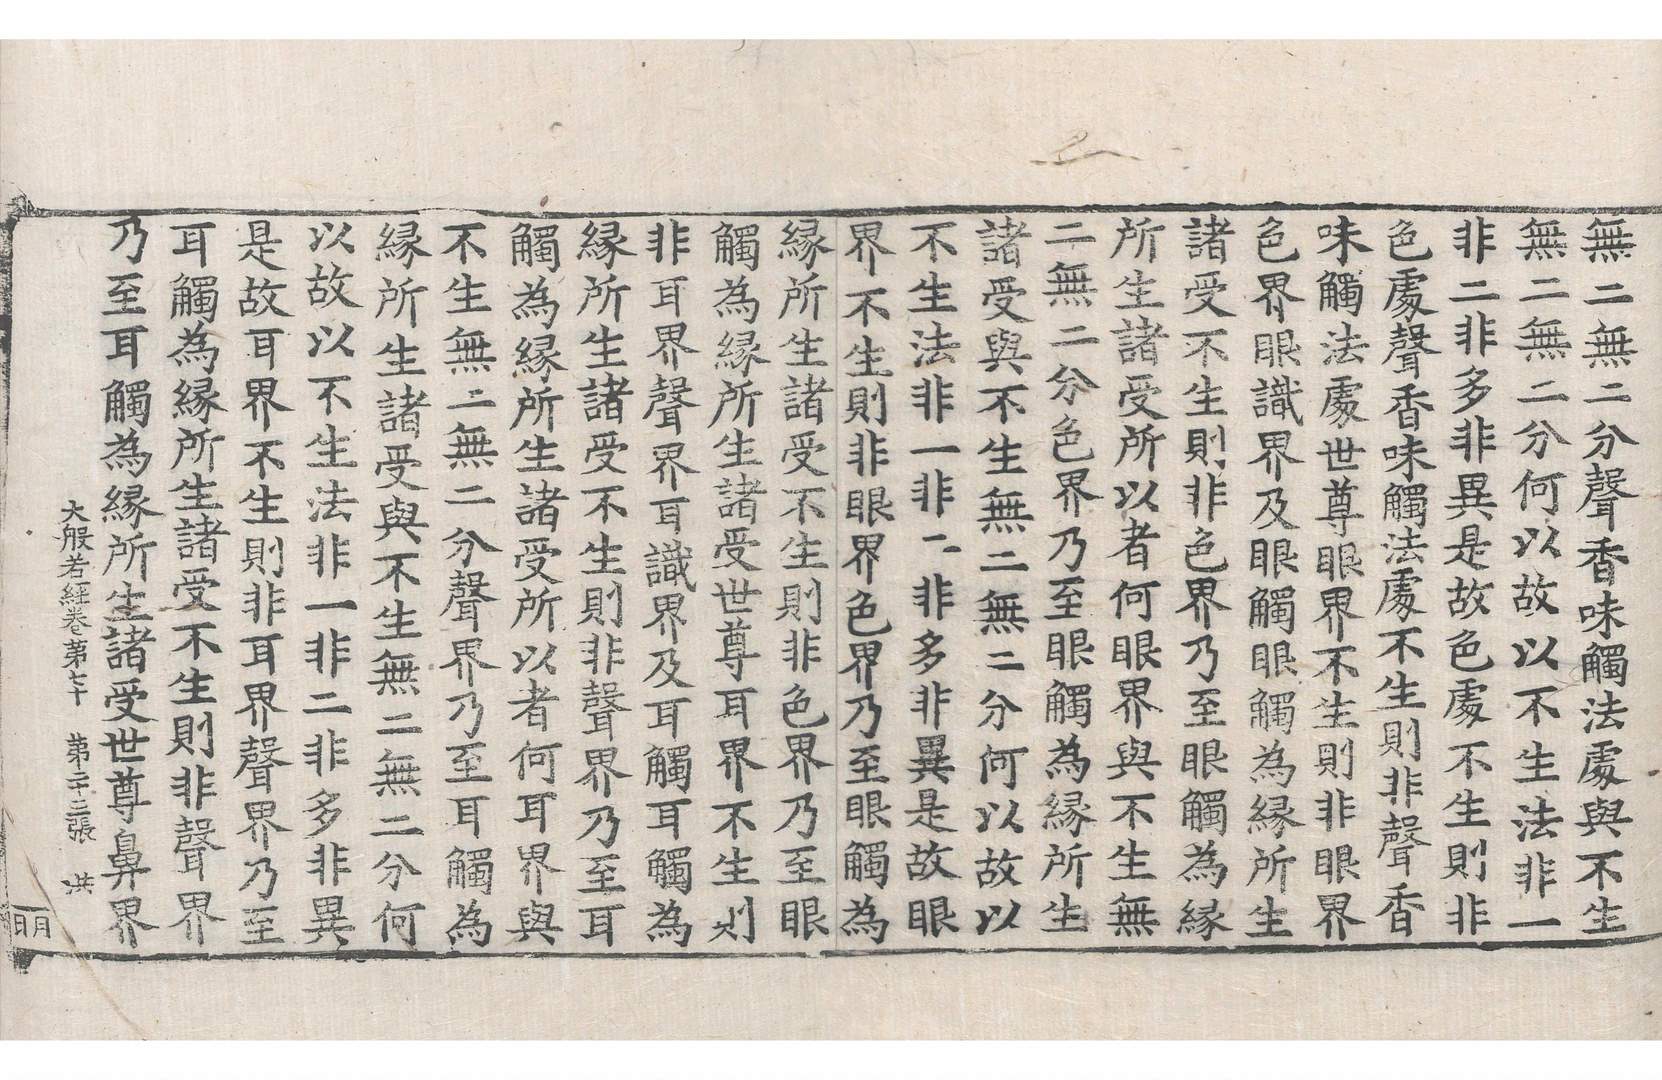 無二無二分聲香味觸法處與不生
無二無二分何以故以不生法非一
非二非多非異是故色處不生則非
色處聲香味觸法處不生則非聲香
味觸法處世尊眼界不生則非眼界
色界眼識界及眼觸眼觸為緣所生
諸受不生則非色界乃至眼觸為緣
所生諸受所以者何眼界與不生無
二無二分色界乃至眼觸為緣所生
諸受與不生無二無二分何以故以
不生法非一非二非多非異是故眼
界不生則非眼界色界乃至眼觸為
緣所生諸受不生則非色界乃至眼
觸為緣所生諸受世尊耳界不生則
非耳界聲界耳識界及耳觸耳觸為
緣所生諸受不生則非聲界乃至耳
觸為緣所生諸受所以者何耳界與
不生無二無二分聲界乃至耳觸為
緣所生諸受與不生無二無二分何
以故以不生法非一非二非多非異
是故耳界不生則非耳界聲界乃至
耳觸為緣所生諸受不生則非聲界
乃至耳觸為緣所生諸受世尊鼻界
大般若經卷第七十 第二十二張 洪
明